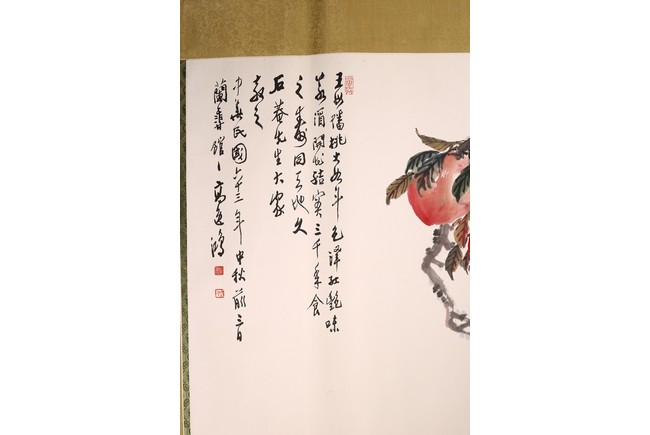 王母蟠桃大如斗色澤紅艷味
最濃開花結實三千年食
之壽同天地久
石菴先生大家
教之
中華民國六十三年中秋前三日
蘭香館 高逸鴻